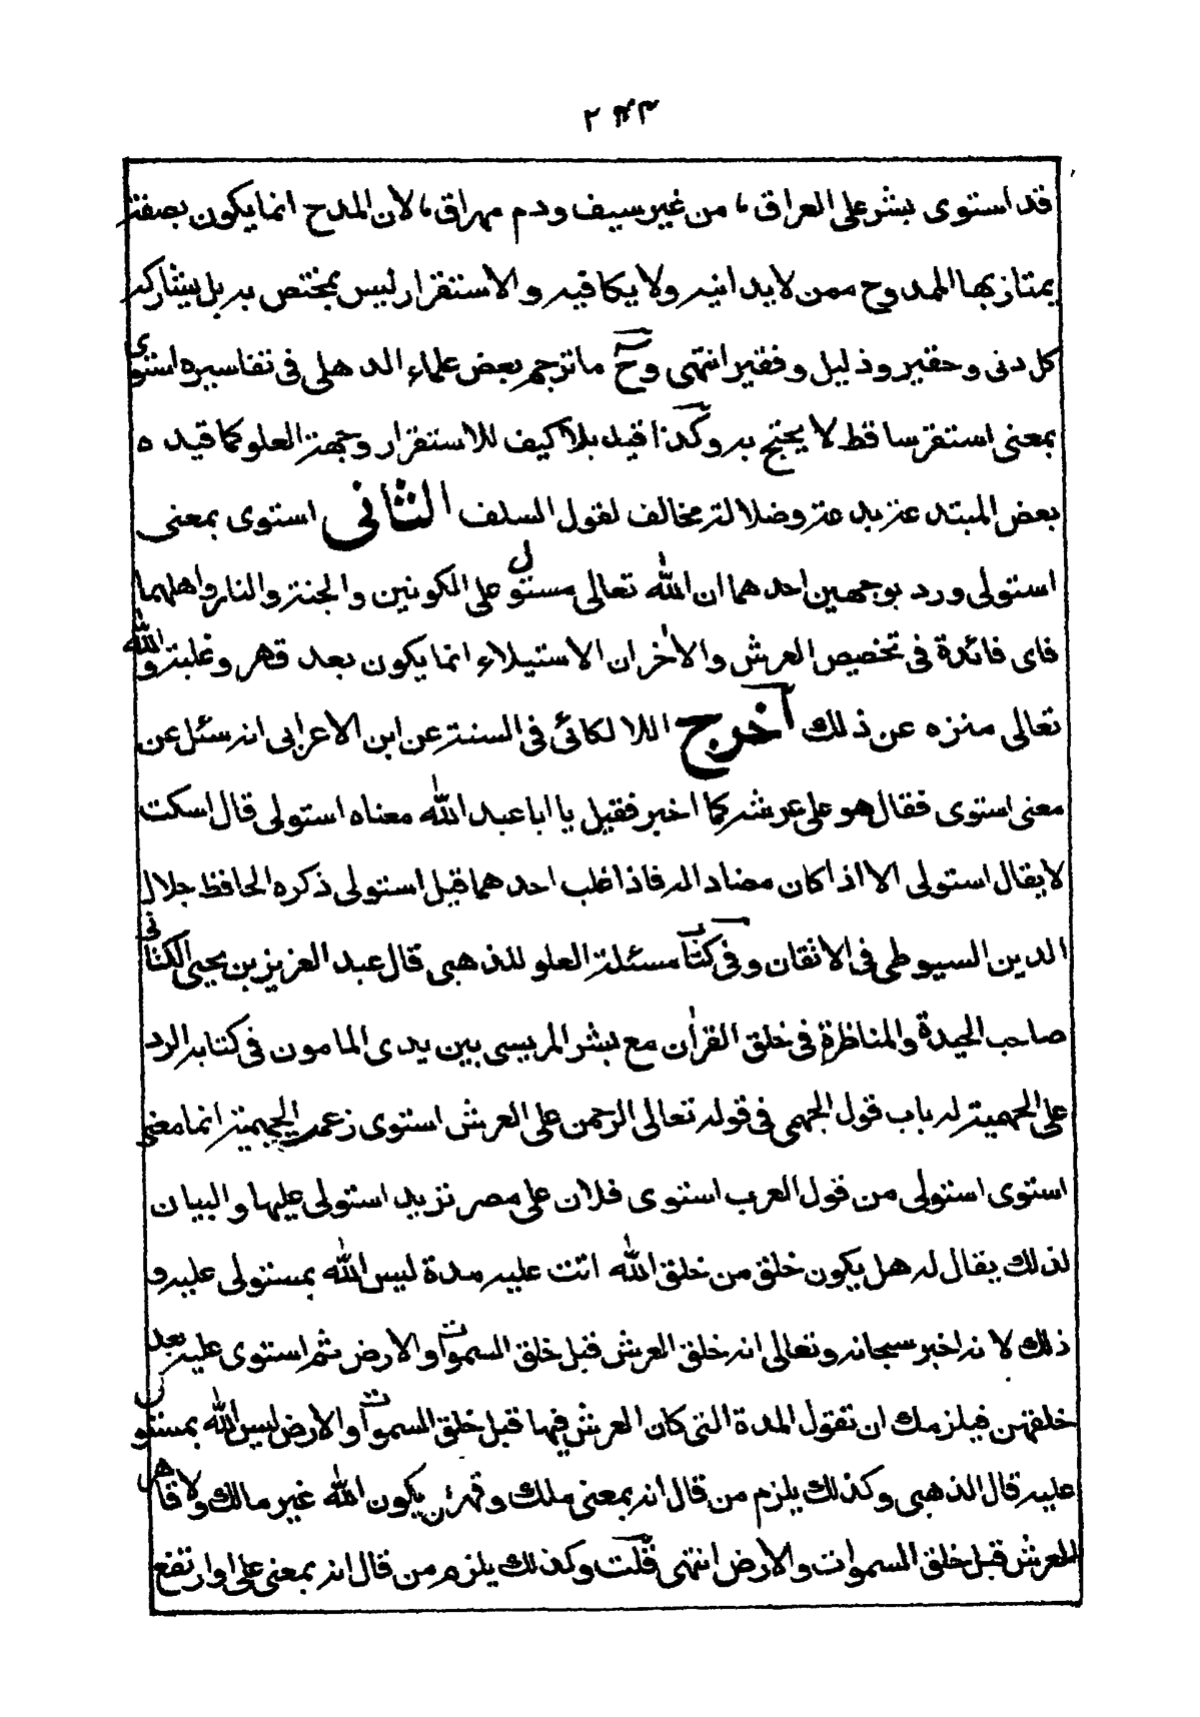 ٢٤٣
قد استوى بشر على العراق ، من غير سيف ودم مهراق ، لان المدح انما يكون بصفة
يمتاز بها الممدوح ممن لا يدانيه ولا يكافيه والاستقرار ليس بمختص به بل يشاركه
كل دنى وحقير وذليل وفقير انتهى وح ما ترجم بعض علماء الدهلى فى تفاسيره استوى
بمعنى استقر ساقط لا يحتج به وكذا قيد بلا كيف للاستقرار وجهة العلو كما قيده
بعض المبتدعة بدعة وضلالة مخالف لقول السلف الثانى استوى بمعنى
استولى ورد بوجهين احدهما ان الله تعالى مستول على الكونين والجنة والنار واهلهما
فاى فائدة فى تخصيص العرش والاٰخر ان الاستيلاء انما يكون بعد قهر وغلبة والله
تعالى منزه عن ذلك اخرج اللالكائى فى السنة عن ابن الاعرابى انه سئل عن
معنى استوى فقال هو على عرشه كما اخبر فقيل يا ابا عبد الله معناه استولى قال اسكت
لا يقال استولى الا اذا كان مضاد اله فاذا غلب احدهما قيل استولى ذكره الحافظ جلال
الدين السيوطى فى الاتقان وفى كتاب مسئلة العلو للذهبى قال عبد العزيز بن يحيى الكنانى
صاحب الحيدة والمناظرة فى خلق القراٰن مع بشر المريسى بين يدى المامون فى كتابه الرد
على الجهمية له باب قول الجهمى فى قوله تعالى الرحمن على العرش استوى زعمت الجهمية انما معنى
استوى استولى من قول العرب استوى فلان على مصر نزيد استولى عليها والبيان
لذلك يقال له هل يكون خلق من خلق الله اتت عليه مدة ليس الله بمستولى عليه و
ذلك لانه اخبر سبحانه وتعالى انه خلق العرش قبل خلق السموات والارض ثم استوى عليه بعد
خلقهن فيلزمك ان تقول المدة التى كان العرش فيها قبل خلق السموات والارض ليس الله بمستول
عليه قال الذهبى وكذلك يلزم من قال انه بمعنى ملك وقهر ان يكون الله غير مالك ولا قاهر
للعرش قبل خلق السموات والارض انتهى قلت وكذلك يلزم من قال انه بمعنى على او ارتفع